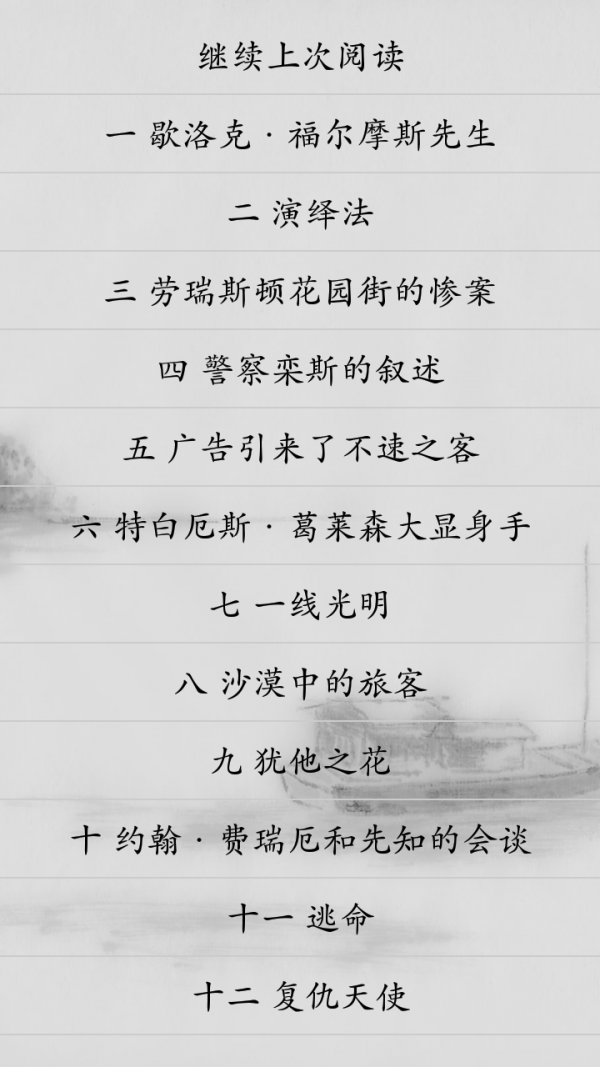 继续上次阅读
一 歇洛克·福尔摩斯先生
二 演绎法
三 劳瑞斯顿花园街的惨案
四 警察栾斯的叙述
五 广告引来了不速之客
六 特白厄斯·葛莱森大显身手
七 一线光明
八 沙漠中的旅客
九 犹他之花
十 约翰·费瑞厄和先知的会谈
十一 逃命
十二 复仇天使